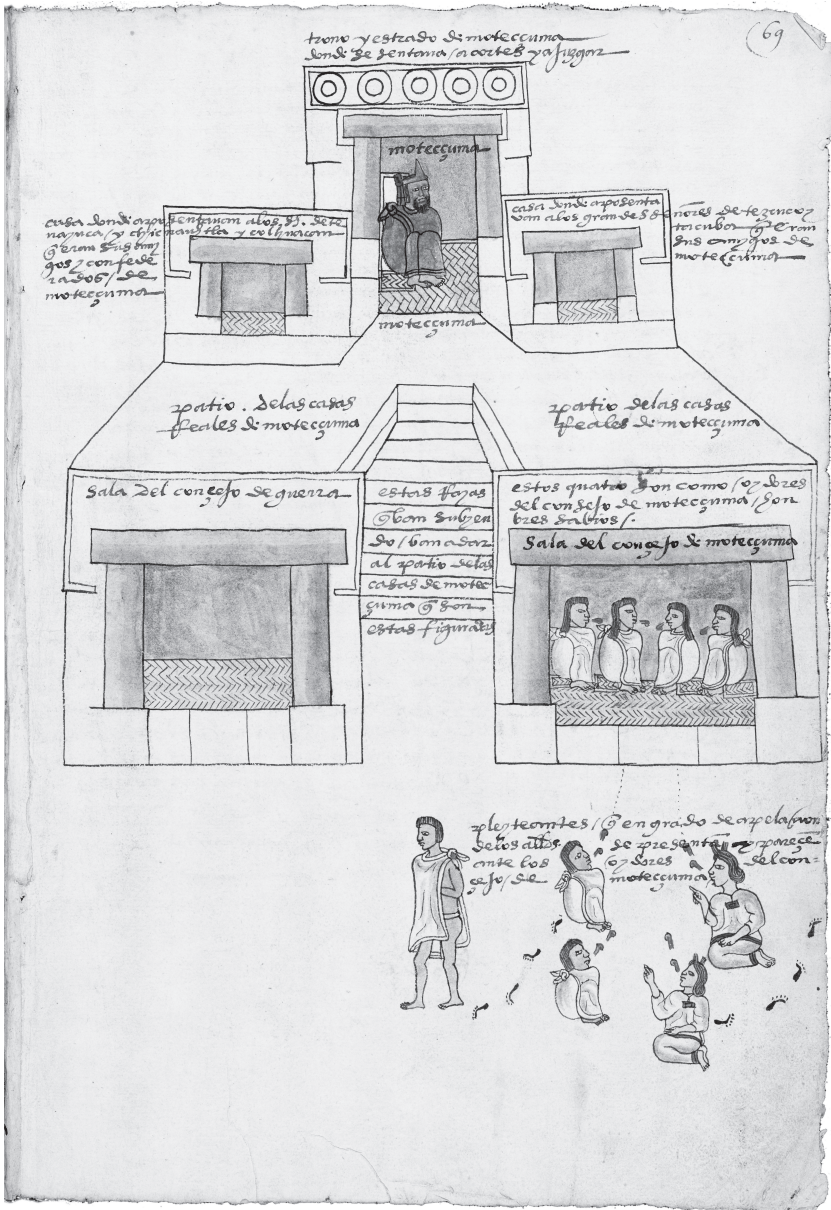 69
trono y estrado de moteccuma
donde se sentaua / a cortes y a juzgar
moteccuma
casa donde aposentauan a los s̃. de te
nayuca / y chicnauhtla y colhuacan
q̃ eran sus ami
gos / y confede
rados / de
moteccuma
casa donde aposenta
van a los grandes señores de tezcuco y
tacuba q̃ eran
sus amygos de
moteccuma
moteccuma
patio . de las casas
Reales de moteccuma
patio de las casas
Reales de moteccuma
Sala Del conçejo de guerra
estas Rayas
q̃ ban subyen
do / ban a dar
al patio de las
casas de motec
çuma q̃ son
estas figuradas
estos quatro son como / oydores
del consejo de moteccuma / hon
bres sabios /.
Sala del conçejo de moteccuma
pleyteantes / q̃ en grado de apelaçion
de los allds. se presentã y pareçẽ
ante los oydores del con-
çejo / de moteccuma